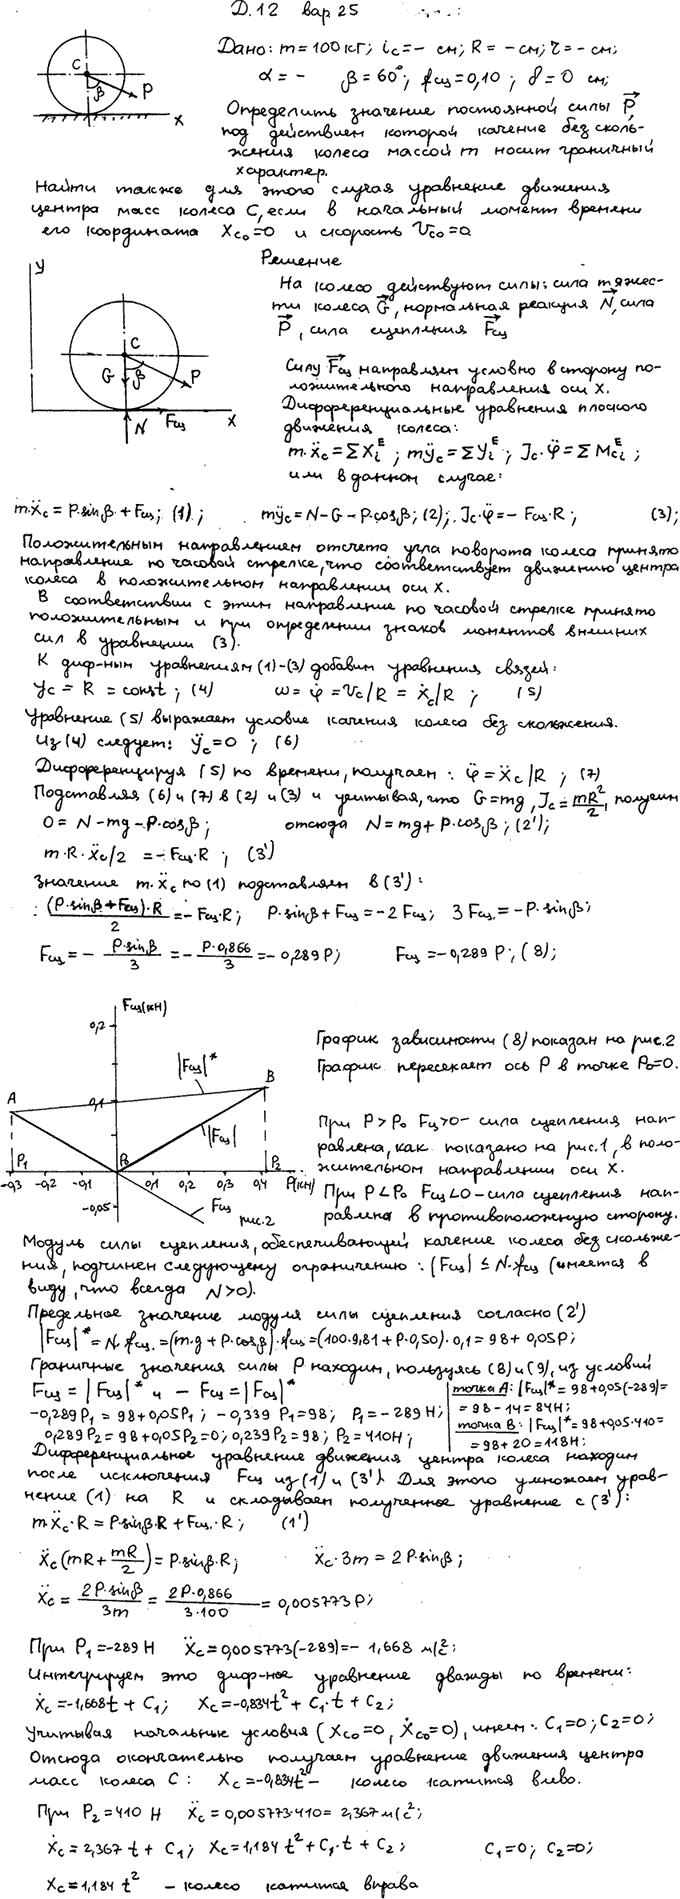 Д.12 вар 25
Дано: m=100кг; ic=– см; R=–см; r=–см;
α=– β=60°; fсц=0,10; δ=0 см;
Определить значение постоянной силы P,
под действием которой качение без сколь-
жения колеса массой m носит граничный
характер.
Найти также для этого случая уравнение движения
центра масс колеса C, если в начальный момент времени
его координата Xco=0 и скорость Vco=0
C
β
P
x
Решение
На колесо действуют силы: сила тяжес-
ти колеса G, нормальная реакция N, сила
P, сила сцепления Fсц
Силу Fсц направляем условно в сторону по-
ложительного направления оси X.
Дифференциальные уравнения плоского
движения колеса:
m·ẍc=ΣXiᴱ; mÿc=ΣYiᴱ; Jc·φ̈=ΣMciᴱ;
или в данном случае:
y
C
G
β
P
N
Fсц
x
m·ẍc=P·sinβ+Fсц; (1); mÿc=N-G-P·cosβ; (2); Jc·φ̈=-Fсц·R; (3);
Положительным направлением отсчета угла поворота колеса принято
направление по часовой стрелке, что соответствует движению центра
колеса в положительном направлении оси X.
В соответствии с этим направление по часовой стрелке принято
положительным и при определении знаков моментов внешних
сил в уравнении (3).
К диф-ным уравнениям (1)-(3) добавим уравнения связей:
yc=R=const; (4) ω=φ̇=Vc/R=ẋc/R; (5)
Уравнение (5) выражает условие качения колеса без скольжения.
Из (4) следует: ÿc=0; (6)
Дифференцируя (5) по времени, получаем: φ̈=ẍc/R; (7)
Подставляя (6) и (7) в (2) и (3) и учитывая, что G=mg, Jc=mR²/2, получим
0=N-mg-P·cosβ; отсюда N=mg+P·cosβ; (2');
m·R·ẍc/2=-Fсц·R; (3')
Значение m·ẍc по (1) подставляем в (3'):
(P·sinβ+Fсц)·R/2=-Fсц·R; P·sinβ+Fсц=-2Fсц; 3Fсц=-P·sinβ;
Fсц=-P·sinβ/3=-P·0,866/3=-0,289P; Fсц=-0,289P; (8);
Fсц(кН)
0,2
|Fсц|*
A
0,1
B
|Fсц|
P1
B
P2
-0,3 -0,2 -0,1 0,1 0,2 0,3 0,4 P(кН)
-0,05
Fсц
рис.2
График зависимости (8) показан на рис.2
График пересекает ось P в точке P0=0.
При P>P0 Fц>0- сила сцепления нап-
равлена, как показано на рис.1, в поло-
жительном направлении оси X.
При P<P0 Fсц<0-сила сцепления нап-
равлена в противоположную сторону.
Модуль силы сцепления, обеспечивающей качение колеса без скольже-
ния, подчинен следующему ограничению: |Fсц|≤N·fсц (имеется в
виду, что всегда N>0).
Предельное значение модуля силы сцепления согласно (2')
|Fсц|*=N·fсц=(m·g+P·cosβ)·fсц=(100·9,81+P·0,50)·0,1=98+0,05P;
Граничные значения силы P находим, пользуясь (8) и (9), из условий
Fсц=|Fсц|* и -Fсц=|Fсц|*
-0,289P1=98+0,05P1; -0,339P1=98; P1=-289Н;
0,289P2=98+0,05P2=0; 0,239P2=98; P2=410Н;
точка A: |Fсц|*=98+0,05(-289)=
=98-14=84Н;
точка B: |Fсц|*=98+0,05·410=
=98+20=118Н;
Дифференциальное уравнение движения центра колеса находим
после исключения Fсц из (1) и (3'). Для этого умножаем урав-
нение (1) на R и складываем полученное уравнение с (3'):
mẍc·R=P·sinβ·R+Fсц·R; (1')
ẍc(mR+mR/2)=P·sinβ·R; ẍc·3m=2P·sinβ;
ẍc=2P·sinβ/3m=2P·0,866/3·100=0,005773P;
При P1=-289Н ẍc=0,005773(-289)=-1,668 м/с²;
Интегрируем это диф-ное уравнение дважды по времени:
ẋc=-1,668t+C1; Xc=-0,834t²+C1·t+C2;
Учитывая начальные условия (Xco=0, Ẋco=0), имеем: C1=0; C2=0;
Отсюда окончательно получаем уравнение движения центра
масс колеса C: Xc=-0,834t²- колесо катится влево.
При P2=410 Н ẍc=0,005773·410=2,367 м/с²;
ẋc=2,367t+C1; Xc=1,184t²+C1·t+C2; C1=0; C2=0;
Xc=1,184t² - колесо катится вправо